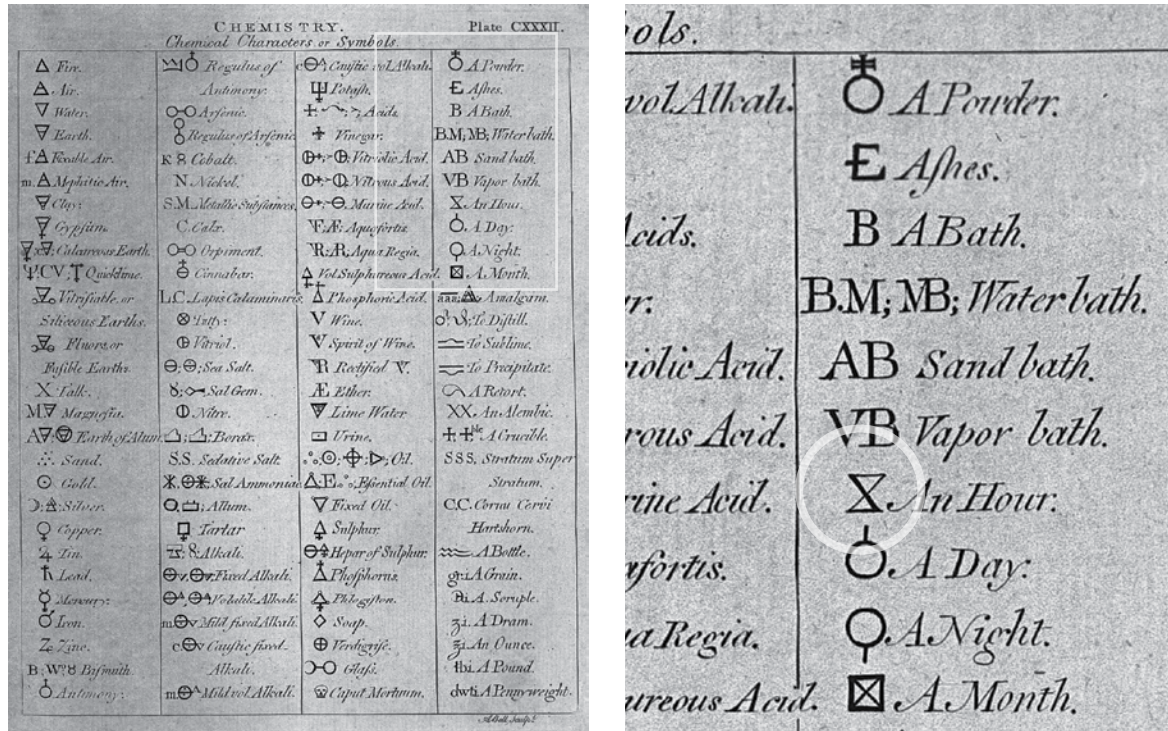 CHEMISTRY.
Plate CXXXII.
Chemical Characters or Symbols.
Fire.
Air.
Water.
Earth.
f Fixable Air.
m. Mephitic Air.
Clay.
Gypsum.
Calcareous Earth.
CV; Quicklime.
Vitrifiable, or
Siliceous Earths.
Fluors, or
Fusible Earths.
X Talk.
M Magnesia.
A Earth of Alum.
Sand.
Gold.
Silver.
Copper.
Tin.
Lead.
Mercury.
Iron.
Z Zinc.
B; W; Bismuth.
Antimony.
Regulus of
Antimony.
Arsenic.
Regulus of Arsenic.
K Cobalt.
N Nickel.
S.M. Metallic Substances.
C. Calx.
Orpiment.
Cinnabar.
L.C. Lapis Calaminaris.
Tutty.
Vitriol.
Sea Salt.
Sal Gem.
Nitre.
Borax.
S.S. Sedative Salt.
Sal Ammoniac.
Allum.
Tartar
Alkali.
Fixed Alkali.
Volatile Alkali.
m. Mild fixed Alkali.
c. Caustic fixed
Alkali.
m. Mild vol. Alkali.
c Caustic vol. Alkali.
Potash.
Acids.
Vinegar.
Vitriolic Acid.
Nitrous Acid.
Marine Acid.
Aquafortis.
Aqua Regia.
Vol. Sulphureous Acid.
Phosphoric Acid.
V Wine.
Spirit of Wine.
Rectified
Æ Ether.
Lime Water
Urine.
Oil.
E Essential Oil.
Fixed Oil.
Sulphur.
Hepar of Sulphur.
Phosphorus.
Phlogiston.
Soap.
Verdigrise.
Glass.
Caput Mortuum.
A Powder.
E Ashes.
B A Bath.
B.M; MB; Water bath.
AB Sand bath.
VB Vapor bath.
An Hour.
A Day.
A Night.
A Month.
aaa; Amalgam.
To Distill.
To Sublime.
To Precipitate.
A Retort.
XX. An Alembic.
A Crucible.
SSS. Stratum Super
Stratum.
C.C. Cornu Cervi
Hartshorn.
A Bottle.
gr.i A Grain.
A Scruple.
ʒi. A Dram.
An Ounce.
lbi. A Pound.
dwti A Pennyweight.
A.Bell Sculp.t
ols.
vol. Alkali.
Acids.
r.
iolic Acid.
rous Acid.
rine Acid.
afortis.
ua Regia.
ureous Acid.
A Powder.
E Ashes.
B A Bath.
B.M; MB; Water bath.
AB Sand bath.
VB Vapor bath.
An Hour.
A Day.
A Night.
A Month.